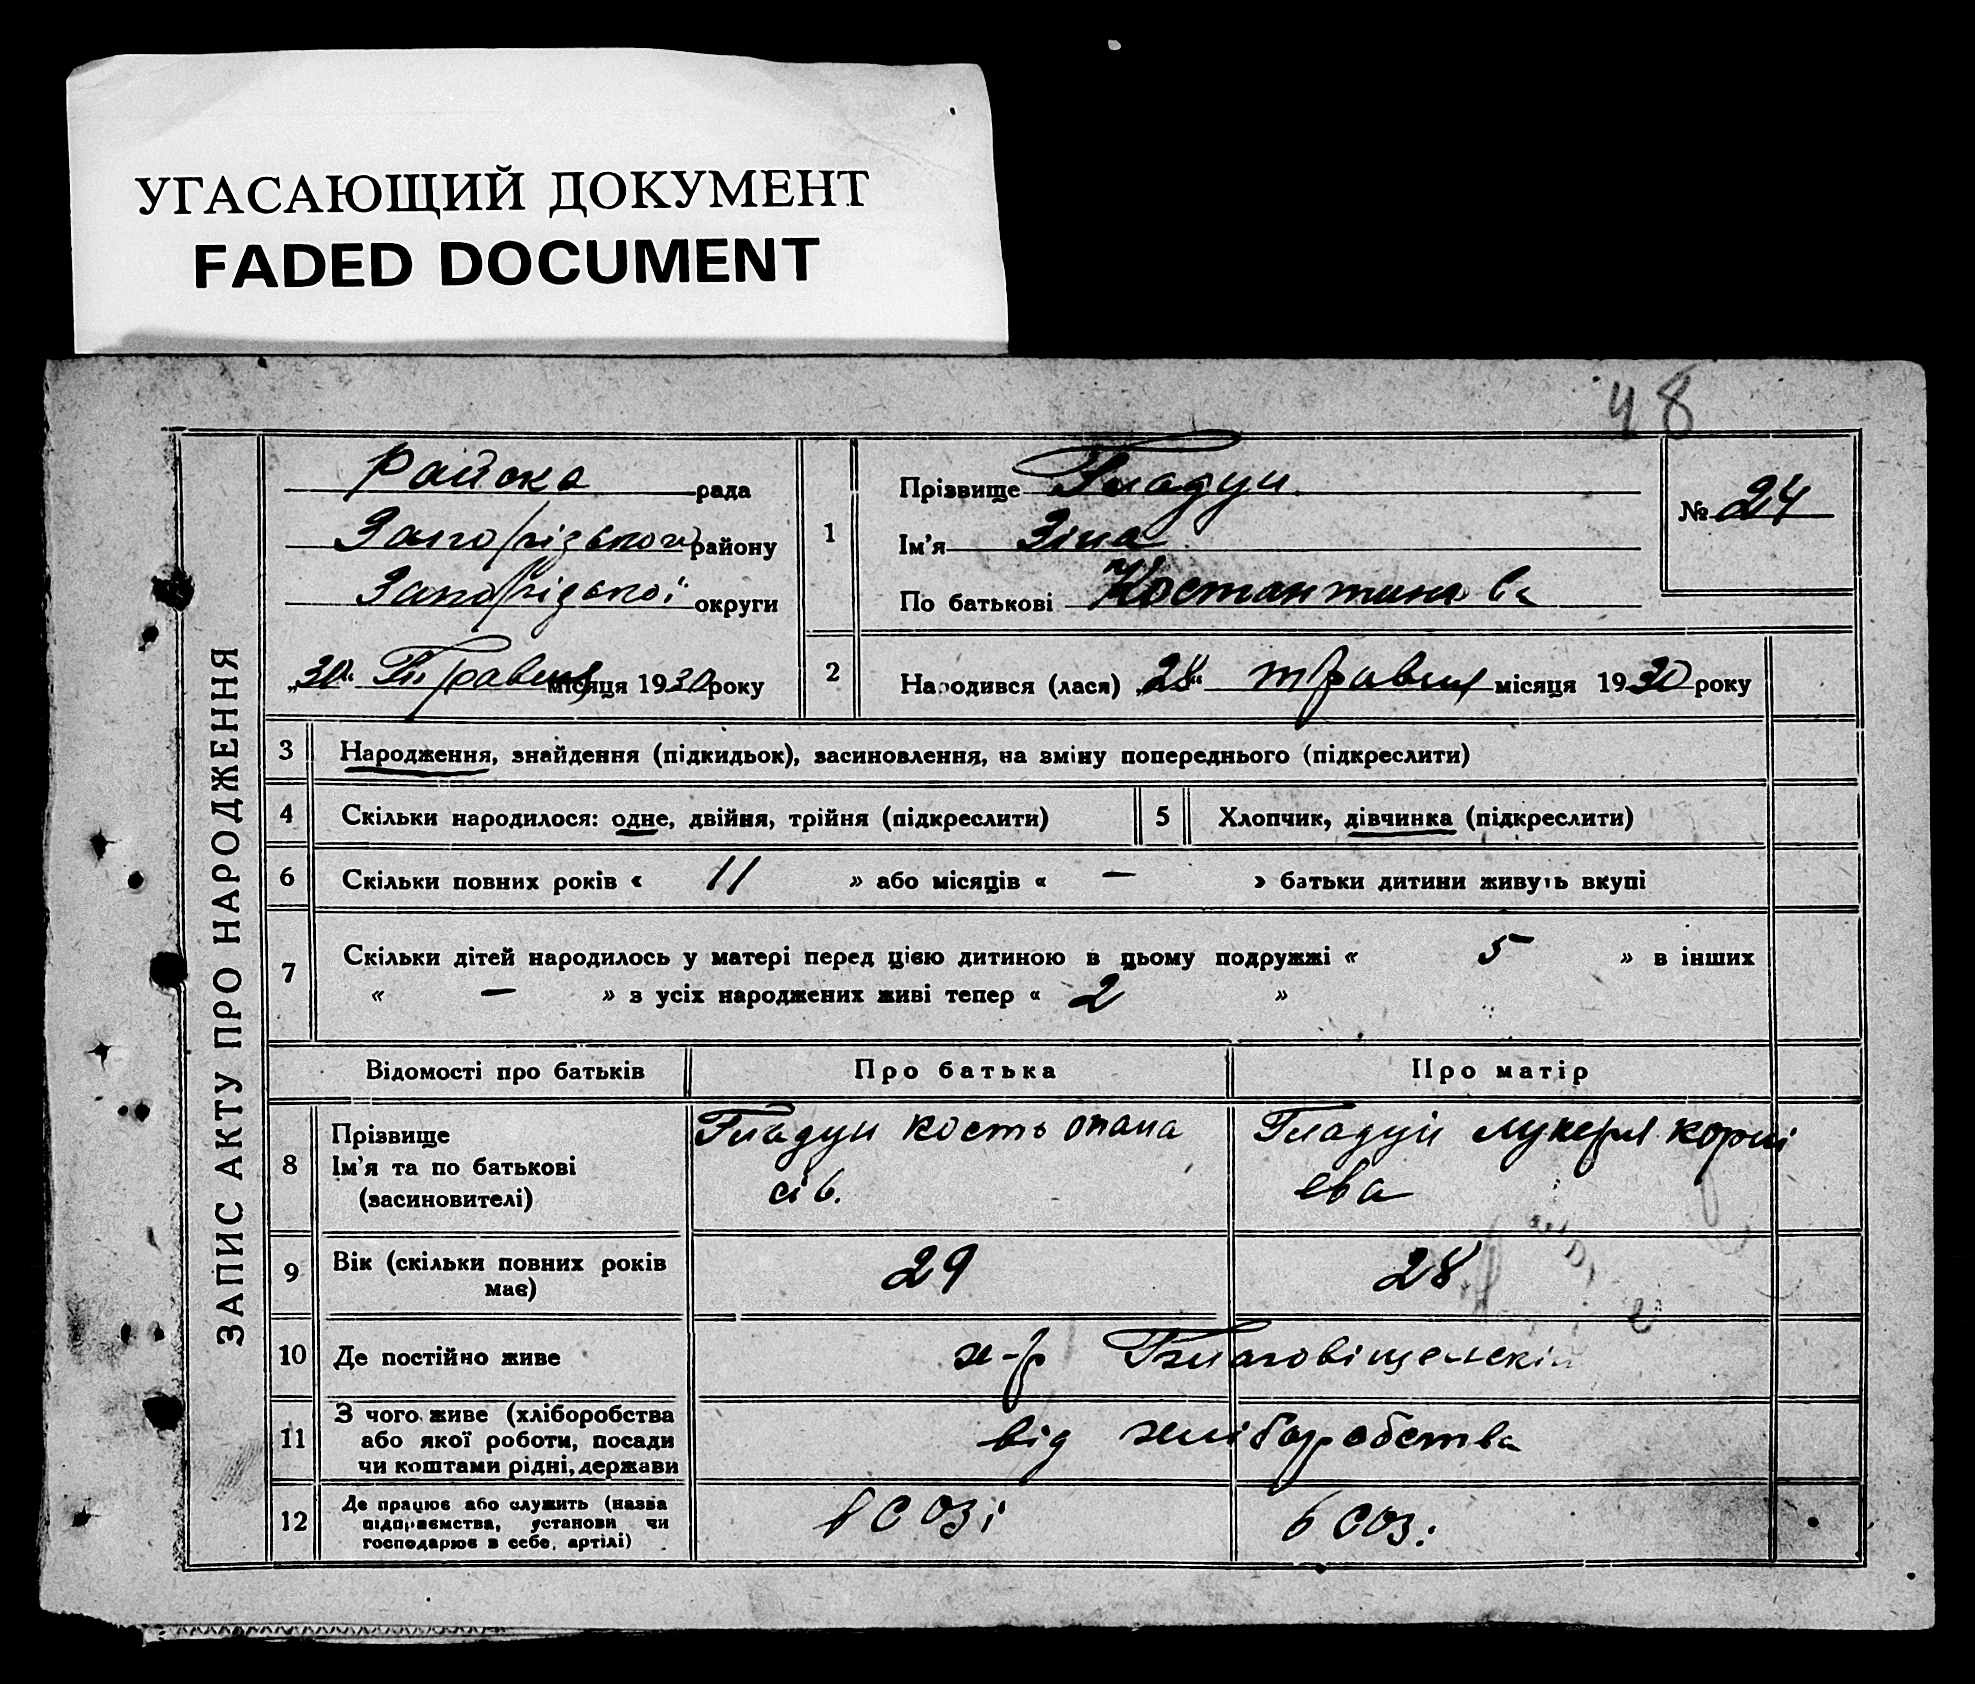 УГАСАЮЩИЙ ДОКУМЕНТ
FADED DOCUMENT
48
ЗАПИС АКТУ ПРО НАРОДЖЕННЯ
Райска рада
Запоріізького району
Запоріізької округи
„30“ Травня місяця 1930 року
1
Прізвище Гладун
Ім'я Зіна
По батькові Костантинова
№ 24
2
Народився (лася) „28“ травня місяця 1930 року
3 Народження, знайдення (підкидьок), засиновлення, на зміну попереднього (підкреслити)
4 Скільки народилося: одне, двійня, трійня (підкреслити)
5 Хлопчик, дівчинка (підкреслити)
6 Скільки повних років « 11 » або місяців « — » батьки дитини живуть вкупі
7 Скільки дітей народилось у матері перед цією дитиною в цьому подружжі « 5 » в інших
« — » з усіх народжених живі тепер « 2 »
Відомості про батьків Про батька Про матір
8 Прізвище
Ім'я та по батькові
(засиновителі)
Гладун Кость опана
сів.
Гладун Лукеря корні
ева
9 Вік (скільки повних років
має)
29 28
10 Де постійно живе х-р Благовіщенскій
11 З чого живе (хліборобства
або якої роботи, посади
чи коштами рідні, держави
від хліборобства
12 Де працює або служить (назва
підприємства, установи чи
господарює в себе, артілі)
в СОЗі в СОЗі